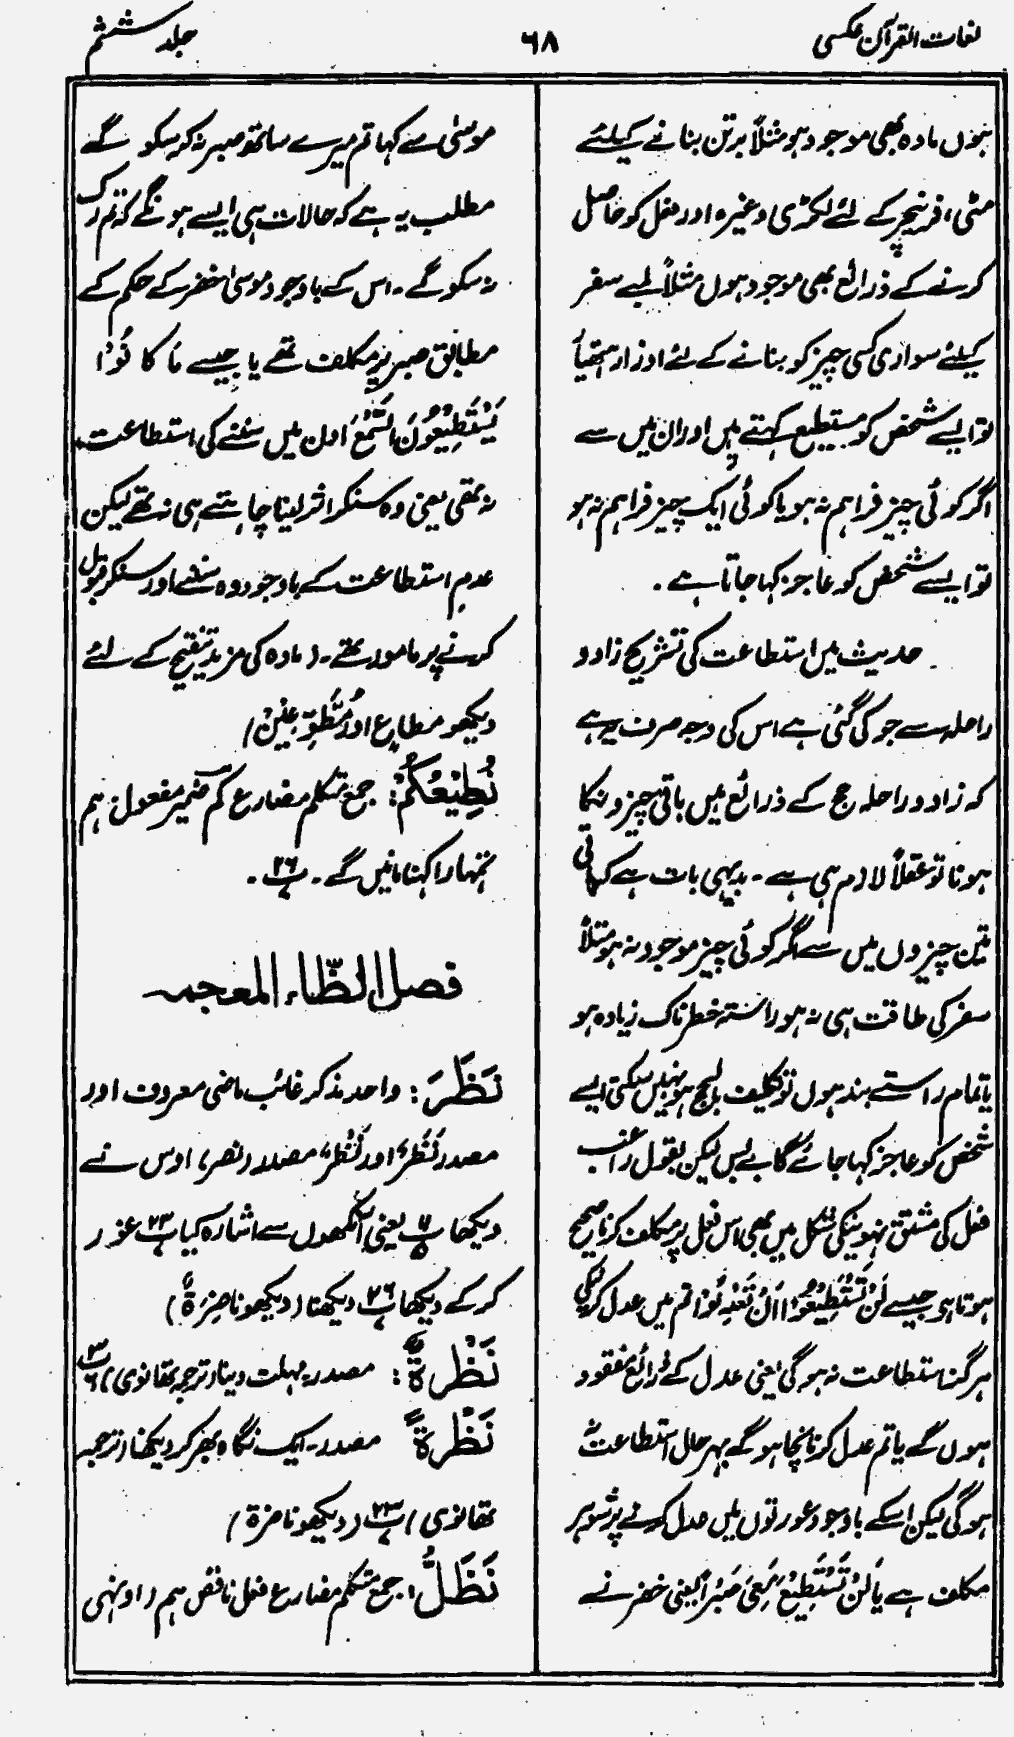 لغات القرآن عکسی
۶۸
جلد ششم
ہوں مادہ بھی موجود ہو مثلاً برتن بنانے کیلئے
مٹی، فرنیچر کے لئے لکڑی وغیرہ اور فعل کو حاصل
کرنے کے ذرائع بھی موجود ہوں مثلاً لمبے سفر
کیلئے سواری کسی چیز کو بنانے کے لئے اوزار ہتھیا
تو ایسے شخص کو مستطیع کہتے ہیں اور ان میں سے
اگر کوئی چیز فراہم نہ ہو یا کوئی ایک چیز فراہم نہ ہو
تو ایسے شخص کو عاجز کہا جاتا ہے۔
حدیث میں استطاعت کی تشریح زاد و
راحلہ سے جو کی گئی ہے اس کی وجہ صرف یہ ہے
کہ زاد و راحلہ حج کے ذرائع میں باقی چیزونکا
ہونا تو عقلاً لازم ہی ہے۔ بدیہی بات ہے کہ باقی
تین چیزوں میں سے اگر کوئی چیز موجود نہ ہو مثلاً
سفر کی طاقت ہی نہ ہو راستہ خطرناک زیادہ ہو
یا تمام راستے بند ہوں تو تکلیف بالحج ہو نہیں سکتی ایسے
شخص کو عاجز کہا جائے گا بے بس لیکن بقول راغب
فعل کی مشتق نہونیکی شکل میں بھی اس فعل پر مکلف کرنا صحیح
ہوتا ہو جیسے لَنْ تَسْتَطِیْعُوْا اَنْ تَعْدِلُوْا تم میں عدل کرنیکی
ہرگز استطاعت نہ ہو گی یعنی عدل کے ذرائع مفقود
ہوں گے یا تم عدل کرنا نچاہو گے بہرحال استطاعت نہ
ہو گی لیکن اسکے باوجود عورتوں میں عدل کرنے پر شوہر
مکلف ہے یا لَنْ تَسْتَطِیْعَ مَعِیَ صَبْرًا یعنی خضر نے
موسیٰ سے کہا تم میرے ساتھ صبر نہ کر سکو گے
مطلب یہ ہے کہ حالات ہی ایسے ہونگے کہ تم رک
نہ سکو گے۔ اس کے باوجود موسیٰ خضر کے حکم کے
مطابق صبر پر مکلف تھے یا جیسے مَا کَا نُوْا
یَسْتَطِیْعُوْنَ السَّمْعَ اون میں سننے کی استطاعت
نہ تھی یعنی وہ سنکر اثر لینا چاہتے ہی نہ تھے لیکن
عدمِ استطاعت کے باوجود وہ سننے اور سنکر قبول
کرنے پر مامور تھے۔ (مادہ کی مزید تنقیح کے لئے
دیکھو مطاع اور مُطَّوِّعِیْنَ)
نُطِیْعُکُمْ: جمع متکلم مضارع کُمْ ضمیر مفعول ہم
تمہارا کہنا مانیں گے۔ پ۲۶۔
فصل الظّاء المعجمہ
نَظَرَ: واحد مذکر غائب ماضی معروف اور
مصدر نَظْرٌ اور نَظَرٌ، مصدر (نصر) اوس نے
دیکھا پ یعنی آنکھوں سے اشارہ کیا پ۲۳ غور
کر کے دیکھا پ۲۹ دیکھنا (دیکھو ناضِرَۃٌ)
نَظِرَۃٌ: مصدر۔ مہلت دینا (ترجمہ تھانوی) پ۳ ۶
نَظْرَۃً مصدر۔ ایک نگاہ بھر کر دیکھنا (ترجمہ
تھانوی) پ۲۳ (دیکھو ناضرۃ)
نَظَلُّ: جمع متکلم مضارع فعل ناقص ہم (اونہی